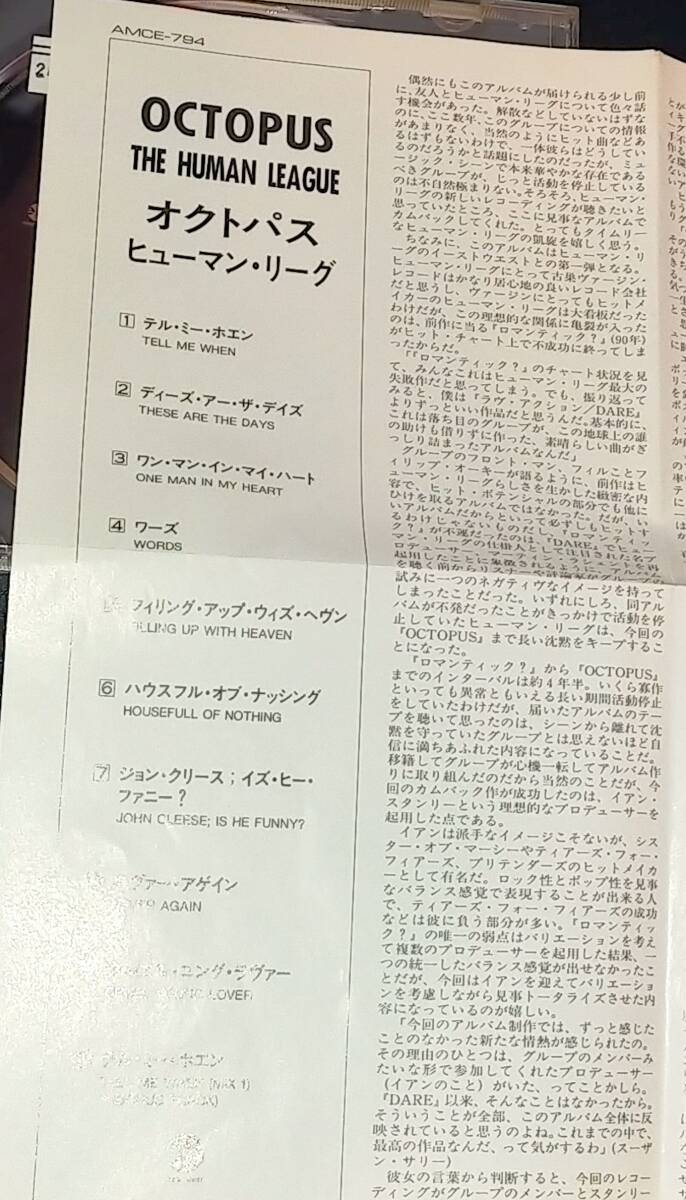 AMCE-794
OCTOPUS
THE HUMAN LEAGUE
オクトパス
ヒューマン・リーグ
1 テル・ミー・ホエン
TELL ME WHEN
2 ディーズ・アー・ザ・デイズ
THESE ARE THE DAYS
3 ワン・マン・イン・マイ・ハート
ONE MAN IN MY HEART
4 ワーズ
WORDS
フィリング・アップ・ウィズ・ヘヴン
FILLING UP WITH HEAVEN
6 ハウスフル・オブ・ナッシング
HOUSEFULL OF NOTHING
7 ジョン・クリース；イズ・ヒー・
ファニー？
JOHN CLEESE; IS HE FUNNY?
ヴァー・アゲイン
AGAIN
ヤング・ラヴァー
LOVER
ホエン
偶然にもこのアルバムが届けられる少し前
に、友人とヒューマン・リーグについて色々話
す機会があった。解散などしていないはずな
のに、ここ数年、このグループについての情報
があまりなく、当然のようにヒット曲などあ
るはずもないわけで、一体彼らはどうしてい
るのだろうかと話題にしたのだったが、ミュ
ージック・シーンで本来華やかな存在である
べきグループが、じっと活動を停止している
のは不自然極まりない。そろそろ、ヒューマン・
リーグの新しいレコーディングが聴きたいと
思っていたところ、ここに見事なアルバムで
カムバックしてくれた。とってもタイムリー
なヒューマン・リーグの凱旋を嬉しく思う。
ちなみに、このアルバムはヒューマン・リ
ーグのイーストウエストとの第一弾となる。
ヒューマン・リーグにとって古巣ヴァージン・
レコードはかなり居心地の良いレコード会社
だと思うし、ヴァージンにとってもヒットメ
イカーのヒューマン・リーグは大看板だった
わけだが、この理想的な関係に亀裂が入った
のは、前作に当る『ロマンティック？』(90年)
がヒット・チャート上で不成功に終ってしま
ったからだ。
「『ロマンティック？』のチャート状況を見
て、みんなこれはヒューマン・リーグ最大の
失敗作だと思ってしまう。でも、振り返って
みると、僕は『ラヴ・アクション／DARE』
よりずっといい作品だと思うんだ。基本的に、
これは落ち目のグループが、この地球上の誰
の助けも借りずに作った、素晴らしい曲がぎ
っしり詰まったアルバムなんだ」
グループのフロント・マン、フィルことフ
ィリップ・オーキーが語るように、前作はヒ
ューマン・リーグらしさを生かした緻密な内
容で、ヒット・ポテンシャルの部分でも他に
ひけを取るアルバムではなかった。だが、い
いアルバムだからといって必ずしもヒットす
るわけじゃないものだし、『ロマンティッ
ク？』が不運だったのは、『DARE』でヒュー
マン・リーグの仕掛人として注目された名プ
ロデューサー、マーティン・ラシェントを再
起用したことに象徴されるように、アルバム
を聴く前からリスナーや評論家がグループの
試みに一つのネガティヴなイメージを持って
しまったことだった。いずれにしろ、同アル
バムが不発だったことがきっかけで活動を停
止していたヒューマン・リーグは、今回の
『OCTOPUS』まで長い沈黙をキープするこ
とになった。
『ロマンティック？』から『OCTOPUS』
までのインターバルは約4年半。いくら寡作
といっても異常ともいえる長い期間活動停止
をしていたわけだが、届いたアルバムのテー
プを聴いて思ったのは、シーンから離れて沈
黙を守っていたグループとは思えないほど自
信に満ちあふれた内容になっていることだ。
移籍してグループが心機一転してアルバム作
りに取り組んだのだから当然のことだが、今
回のカムバック作が成功したのは、イアン・
スタンリーという理想的なプロデューサーを
起用した点である。
イアンは派手なイメージこそないが、シス
ター・オブ・マーシーやティアーズ・フォー・
フィアーズ、プリテンダーズのヒットメイカ
ーとして有名だ。ロック性とポップ性を見事
なバランス感覚で表現することが出来る人
で、ティアーズ・フォー・フィアーズの成功
などは彼に負う部分が多い。『ロマンティッ
ク？』の唯一の弱点はバリエーションを考え
て複数のプロデューサーを起用した結果、一
つの統一したバランス感覚が出せなかったこ
とだが、今回はイアンを迎えてバリエーショ
ンを考慮しながら見事トータライズさせた内
容になっているのが嬉しい。
「今回のアルバム制作では、ずっと感じた
ことのなかった新たな情熱が感じられたの。
その理由のひとつは、グループのメンバーみ
たいな形で参加してくれたプロデューサー
(イアンのこと)がいた、ってことかしら。
『DARE』以来、そんなことはなかったから。
そういうことが全部、このアルバム全体に反
映されていると思うのよね。これまでの中で、
最高の作品なんだ、って気がするわ」(スーザ
ン・サリー)
彼女の言葉から判断すると、今回のレコー
ディングがグループのメンバーとスタンリー